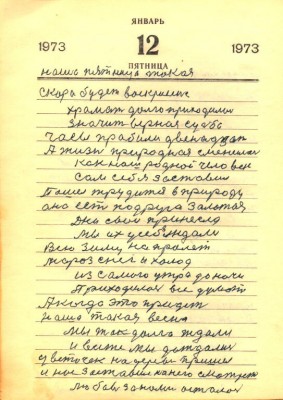 ЯНВАРЬ
1973 12 1973
ПЯТНИЦА
наша пятница такая
Скора будет воскриние
храмат долго приходилися
Значит верная судьба
Часы прабили двенадцат
А жизн природная сменилася
Как наш родной человек
Сам себя заставил
Паше трудится в природу
ана ест подруга Залатая
Дни свои принесла
Мы их
Всю Зиму на пралет
мороз снег и холод
из самого утра до ночи
Приходилися все думат
А когда это придет
наша такая весна
Мы так долго ждали
и все же мы дождалис
цветочек на пришел
и нас Заставил на него смотрет
любов за нами осталася